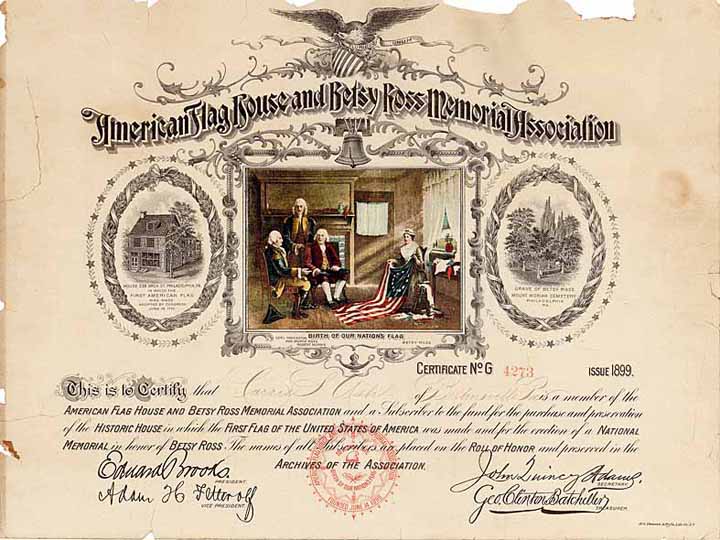 UNUM
American Flag House and Betsy Ross Memorial Association
HOUSE 239 ARCH ST. PHILADELPHIA, PA.
IN WHICH THE
FIRST AMERICAN FLAG
WAS MADE
ADOPTED BY CONGRESS
JUNE 14, 1777
GRAVE OF BETSY ROSS
MOUNT MORIAH CEMETERY
PHILADELPHIA
BIRTH OF OUR NATION'S FLAG
ROBERT MORRIS
BETSY ROSS
CERTIFICATE No G 4273 ISSUE 1899.
This is to Certify that Carrie of is a member of the
AMERICAN FLAG HOUSE AND BETSY ROSS MEMORIAL ASSOCIATION and a Subscriber to the fund for the purchase and preservation
of the HISTORIC HOUSE in which the FIRST FLAG OF THE UNITED STATES OF AMERICA was made and for the erection of a NATIONAL
MEMORIAL in honor of BETSY ROSS. The names of all Subscribers are placed on the ROLL OF HONOR and preserved in the
ARCHIVES OF THE ASSOCIATION.
Edward Brooks.
PRESIDENT.
Adam H Fetterolf
VICE PRESIDENT.
John Quincy Adams.
SECRETARY.
Geo. Clinton Batcheller
TREASURER.